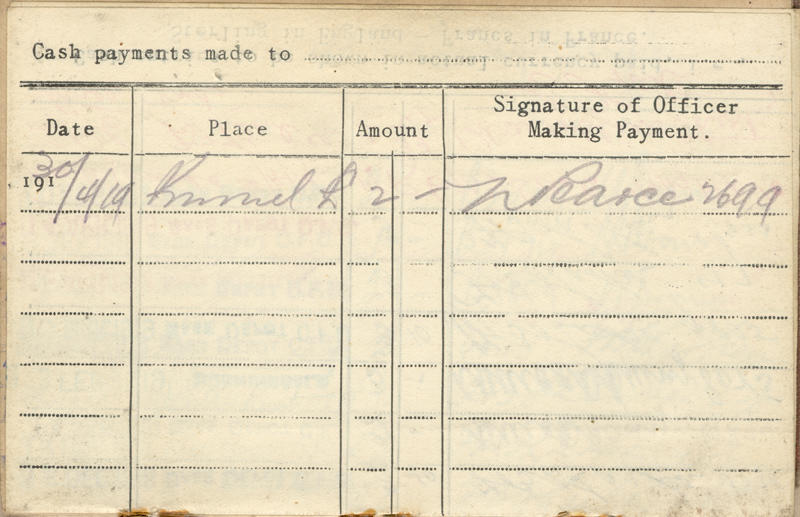 Cash payments made to
Date Place Amount Signature of Officer Making Payment.
191 30/4/19 Kinmel £ 2 - Pearce 2699